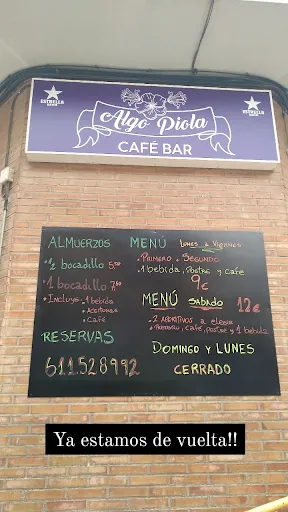 ESTRELLA
GALICIA
ESTRELLA
GALICIA
Algo Piola
CAFÉ BAR
ALMUERZOS
½ bocadillo 5,50
1 bocadillo 7,50
• Incluye 1 bebida
• Aceitunas
• Café
RESERVAS
611.528.992
MENÚ LUNES A VIERNES
• PRIMERO • SEGUNDO
1 bebida, POSTRE y CAFE
9€
MENÚ SABADO 12€
• 2 APERITIVOS a elegir
• PRINCIPAL, café, postre y 1 bebida
DOMINGO Y LUNES
CERRADO
Ya estamos de vuelta!!